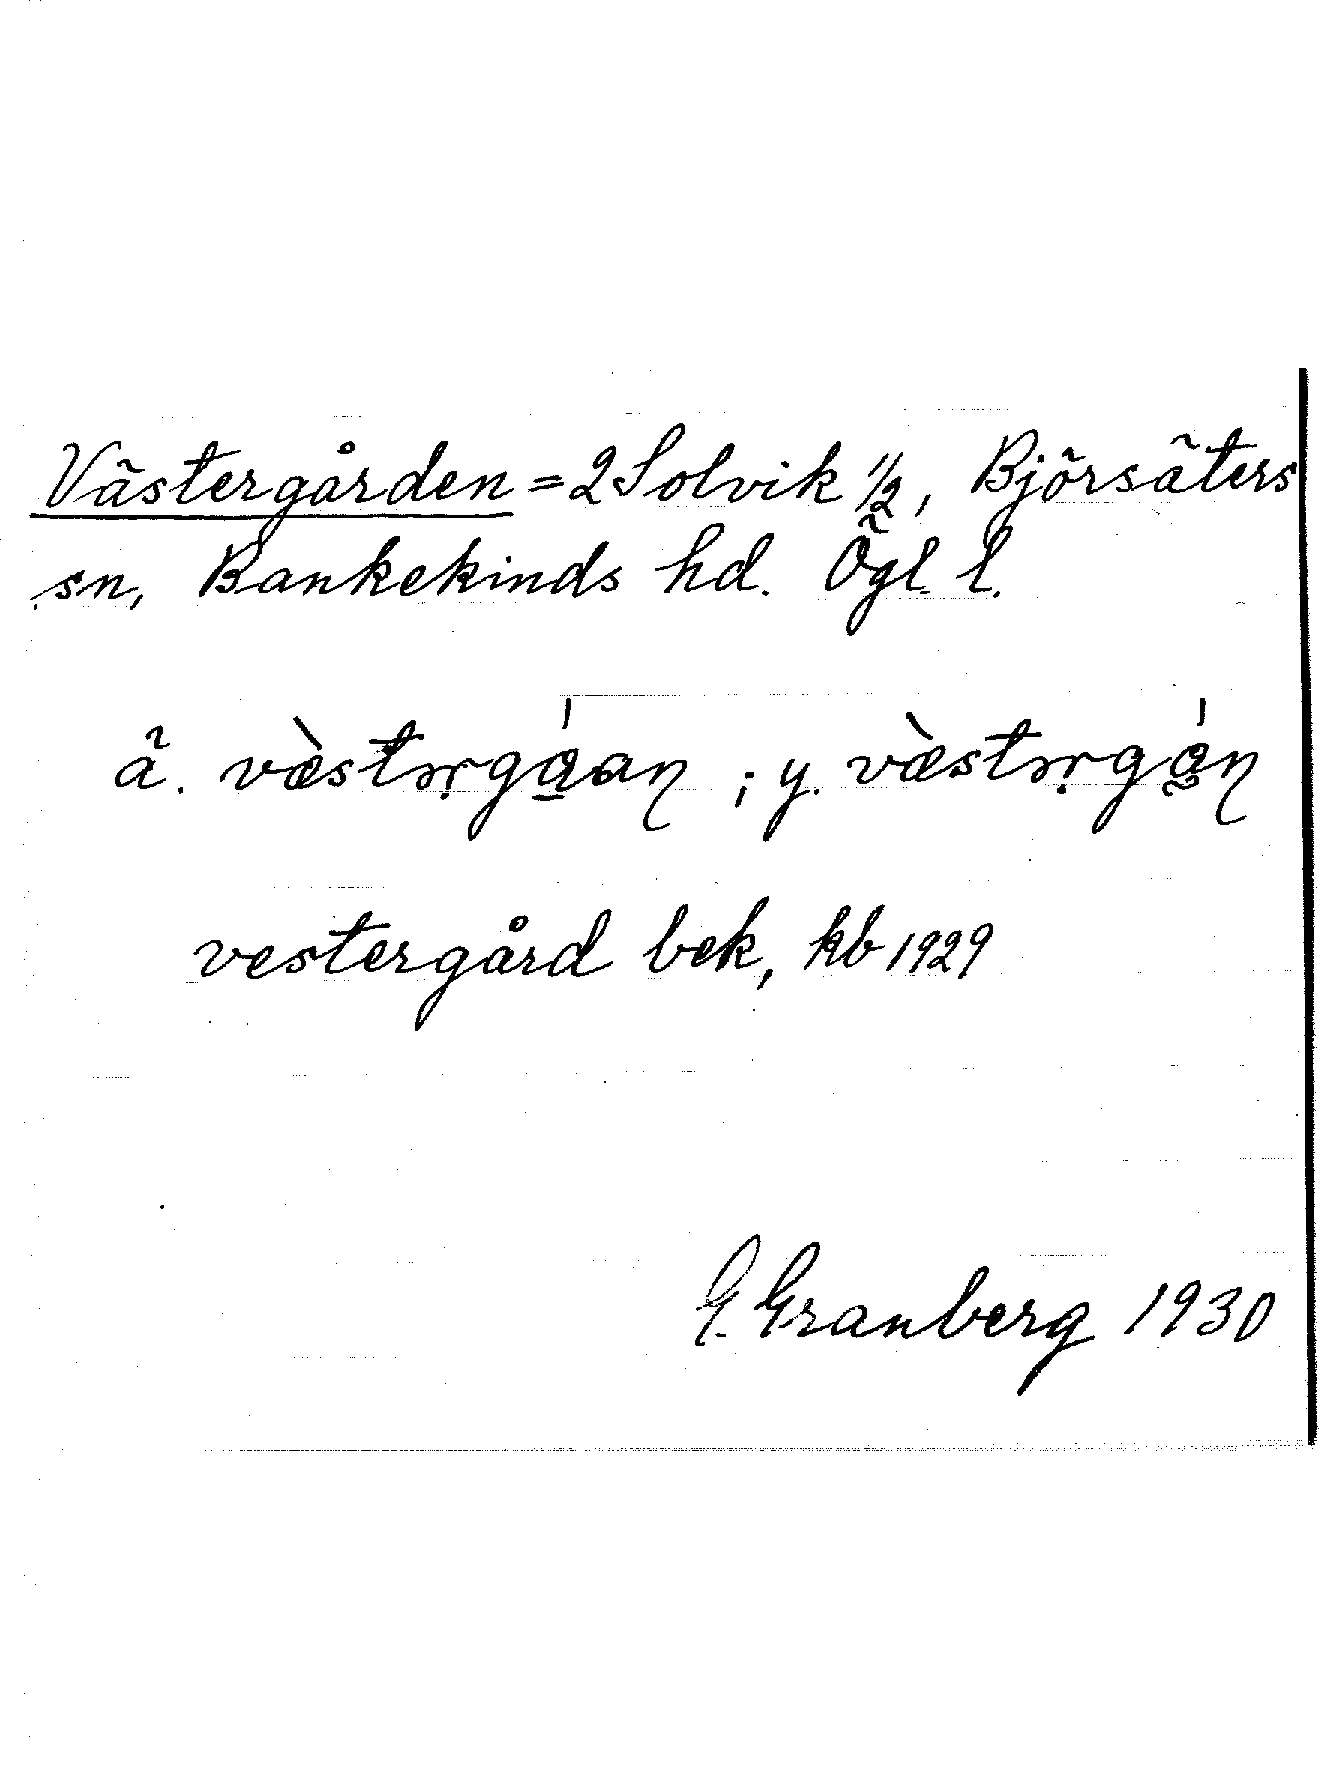 Västergården = 2 Solvik 1/2, Björsäters
sn, Bankekinds hd. Ögl. l.
ä. væ̀stərgáan ; y. væ̀stərgán
vestergård bek, kb 1929
G. Granberg 1930